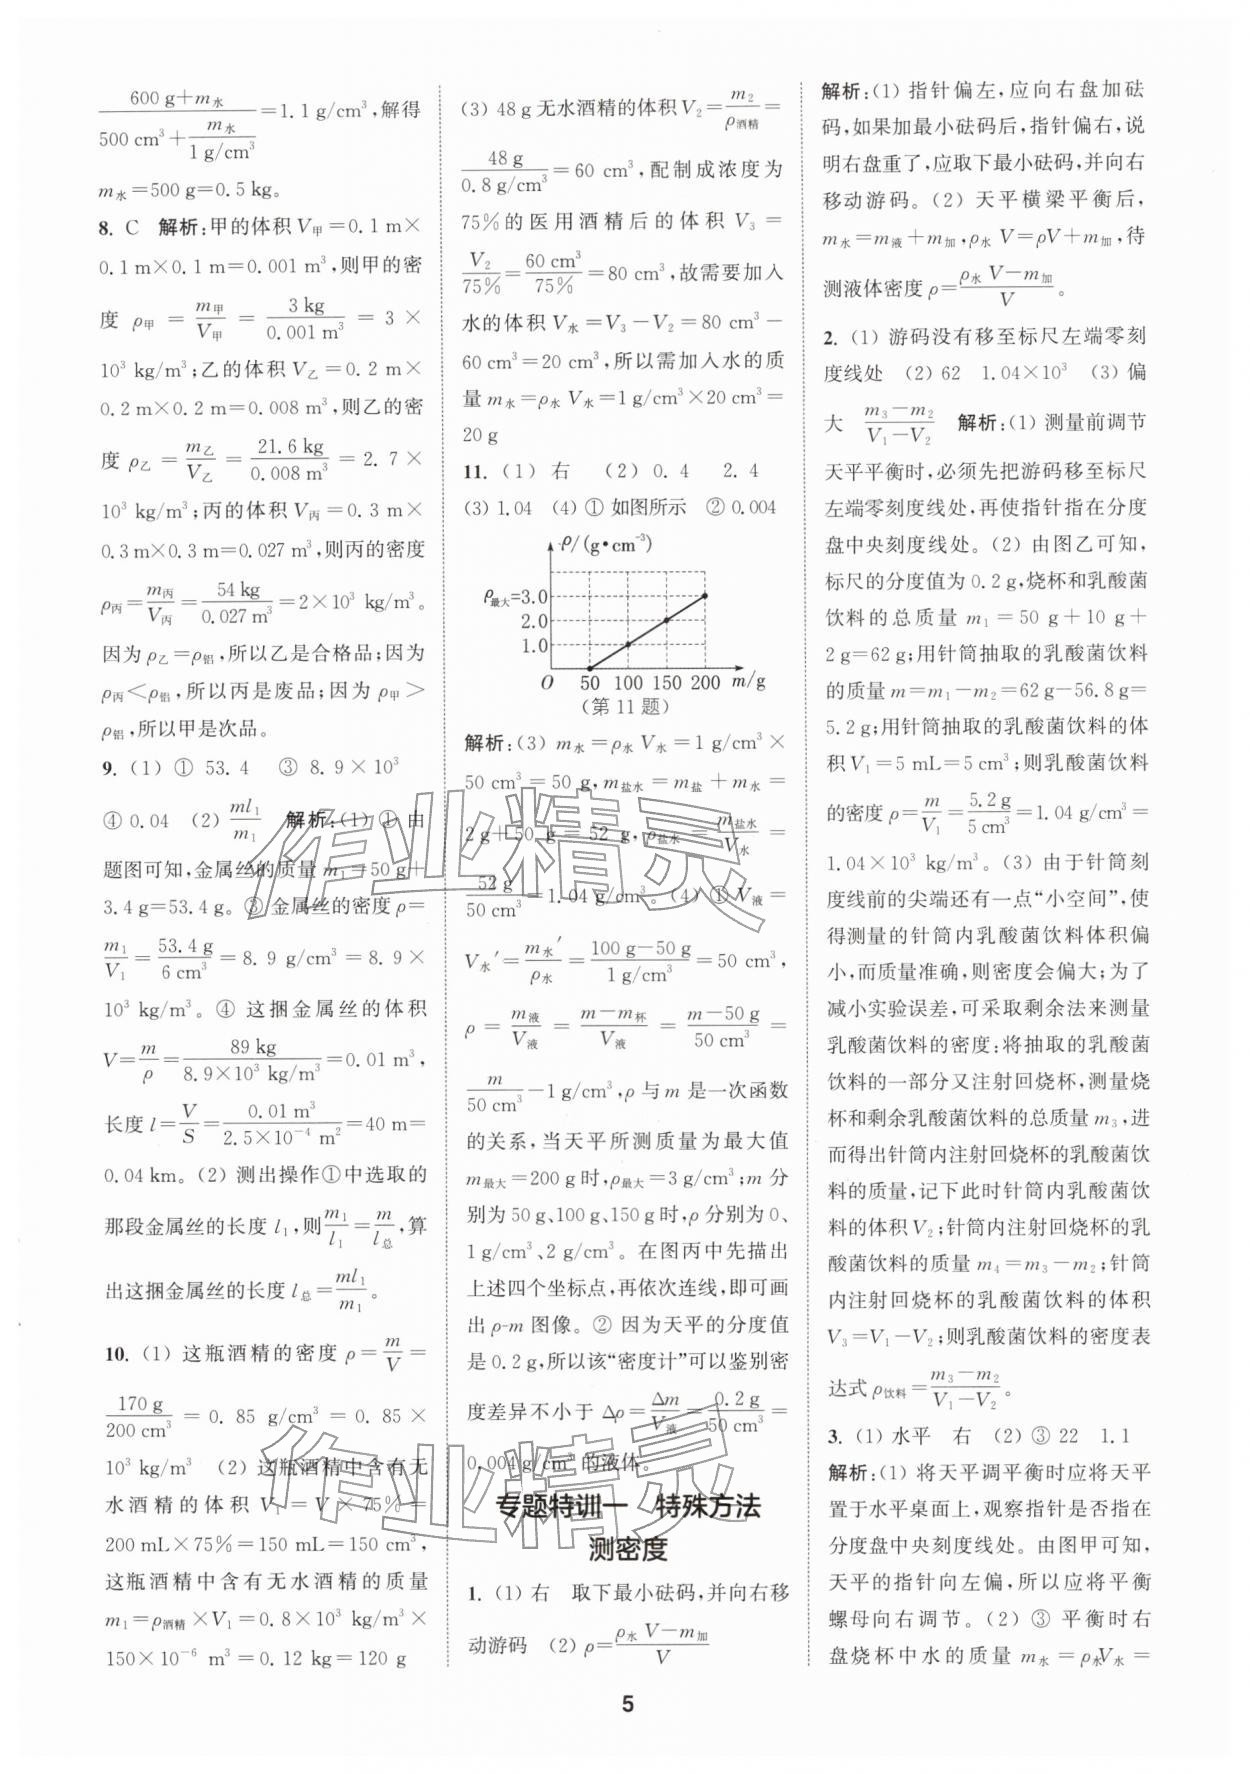 600 g+m水
─────────────=1.1 g/cm³,解得
500 cm³+m水/(1 g/cm³)
m水=500 g=0.5 kg。
8. C 解析:甲的体积V甲=0.1 m×
0.1 m×0.1 m=0.001 m³,则甲的密
度 ρ甲 = m甲/V甲 = 3 kg/0.001 m³ = 3 ×
10³ kg/m³;乙的体积V乙=0.2 m×
0.2 m×0.2 m=0.008 m³,则乙的密
度 ρ乙 = m乙/V乙 = 21.6 kg/0.008 m³ = 2.7 ×
10³ kg/m³;丙的体积V丙=0.3 m×
0.3 m×0.3 m=0.027 m³,则丙的密度
ρ丙=m丙/V丙=54 kg/0.027 m³=2×10³ kg/m³。
因为ρ乙=ρ铝,所以乙是合格品;因为
ρ丙<ρ铝,所以丙是废品;因为ρ甲>
ρ铝,所以甲是次品。
9. (1) ① 53.4 ③ 8.9×10³
④ 0.04 (2) ml₁/m₁ 解析:(1) ① 由
题图可知,金属丝的质量m₁=50 g+
3.4 g=53.4 g。③ 金属丝的密度ρ=
m₁/V₁=53.4 g/6 cm³=8.9 g/cm³=8.9×
10³ kg/m³。④ 这捆金属丝的体积
V=m/ρ=89 kg/(8.9×10³ kg/m³)=0.01 m³,
长度l=V/S=0.01 m³/(2.5×10⁻⁴ m²)=40 m=
0.04 km。(2) 测出操作①中选取的
那段金属丝的长度l₁,则m₁/l₁=m/l总,算
出这捆金属丝的长度l总=ml₁/m₁。
10. (1) 这瓶酒精的密度ρ=m/V=
170 g/200 cm³ = 0.85 g/cm³ = 0.85 ×
10³ kg/m³ (2) 这瓶酒精中含有无
水酒精的体积V₁=V×75%=
200 mL×75%=150 mL=150 cm³,
这瓶酒精中含有无水酒精的质量
m₁=ρ酒精×V₁=0.8×10³ kg/m³×
150×10⁻⁶ m³=0.12 kg=120 g
(3) 48 g无水酒精的体积V₂=m₂/ρ酒精=
48 g/(0.8 g/cm³)=60 cm³,配制成浓度为
75%的医用酒精后的体积V₃=
V₂/75%=60 cm³/75%=80 cm³,故需要加入
水的体积V水=V₃-V₂=80 cm³-
60 cm³=20 cm³,所以需加入水的质
量m水=ρ水V水=1 g/cm³×20 cm³=
20 g
11. (1) 右 (2) 0.4 2.4
(3) 1.04 (4) ① 如图所示 ② 0.004
ρ/(g•cm⁻³)
ρ最大=3.0
2.0
1.0
O 50 100 150 200 m/g
(第11题)
解析:(3) m水=ρ水V水=1 g/cm³×
50 cm³=50 g,m盐水=m盐+m水=
2 g+50 g=52 g,ρ盐水=m盐水/V水=
52 g/50 cm³=1.04 g/cm³。(4) ① V液=
V水′=m水′/ρ水=(100 g-50 g)/(1 g/cm³)=50 cm³,
ρ = m液/V液 = (m-m杯)/V液 = (m-50 g)/50 cm³ =
m/50 cm³-1 g/cm³,ρ与m是一次函数
的关系,当天平所测质量为最大值
m最大=200 g时,ρ最大=3 g/cm³;m分
别为50 g、100 g、150 g时,ρ分别为0、
1 g/cm³、2 g/cm³。在图丙中先描出
上述四个坐标点,再依次连线,即可画
出ρ-m图像。② 因为天平的分度值
是0.2 g,所以该“密度计”可以鉴别密
度差异不小于Δρ=Δm/V液=0.2 g/50 cm³=
0.004 g/cm³的液体。
专题特训一 特殊方法
测密度
1. (1) 右 取下最小砝码,并向右移
动游码 (2) ρ=(ρ水V-m加)/V
解析:(1) 指针偏左,应向右盘加砝
码,如果加最小砝码后,指针偏右,说
明右盘重了,应取下最小砝码,并向右
移动游码。(2) 天平横梁平衡后,
m水=m液+m加,ρ水V=ρV+m加,待
测液体密度ρ=(ρ水V-m加)/V。
2. (1) 游码没有移至标尺左端零刻
度线处 (2) 62 1.04×10³ (3) 偏
大 (m₃-m₂)/(V₁-V₂) 解析:(1) 测量前调节
天平平衡时,必须先把游码移至标尺
左端零刻度线处,再使指针指在分度
盘中央刻度线处。(2) 由图乙可知,
标尺的分度值为0.2 g,烧杯和乳酸菌
饮料的总质量m₁=50 g+10 g+
2 g=62 g;用针筒抽取的乳酸菌饮料
的质量m=m₁-m₂=62 g-56.8 g=
5.2 g;用针筒抽取的乳酸菌饮料的体
积V₁=5 mL=5 cm³;则乳酸菌饮料
的密度ρ=m/V₁=5.2 g/5 cm³=1.04 g/cm³=
1.04×10³ kg/m³。(3) 由于针筒刻
度线前的尖端还有一点“小空间”,使
得测量的针筒内乳酸菌饮料体积偏
小,而质量准确,则密度会偏大;为了
减小实验误差,可采取剩余法来测量
乳酸菌饮料的密度:将抽取的乳酸菌
饮料的一部分又注射回烧杯,测量烧
杯和剩余乳酸菌饮料的总质量m₃,进
而得出针筒内注射回烧杯的乳酸菌饮
料的质量,记下此时针筒内乳酸菌饮
料的体积V₂;针筒内注射回烧杯的乳
酸菌饮料的质量m₄=m₃-m₂;针筒
内注射回烧杯的乳酸菌饮料的体积
V₃=V₁-V₂;则乳酸菌饮料的密度表
达式ρ饮料=(m₃-m₂)/(V₁-V₂)。
3. (1) 水平 右 (2) ③ 22 1.1
解析:(1) 将天平调平衡时应将天平
置于水平桌面上,观察指针是否指在
分度盘中央刻度线处。由图甲可知,
天平的指针向左偏,所以应将平衡
螺母向右调节。(2) ③ 平衡时右
盘烧杯中水的质量m水=ρ水V水=
5
作业精灵
作业精灵